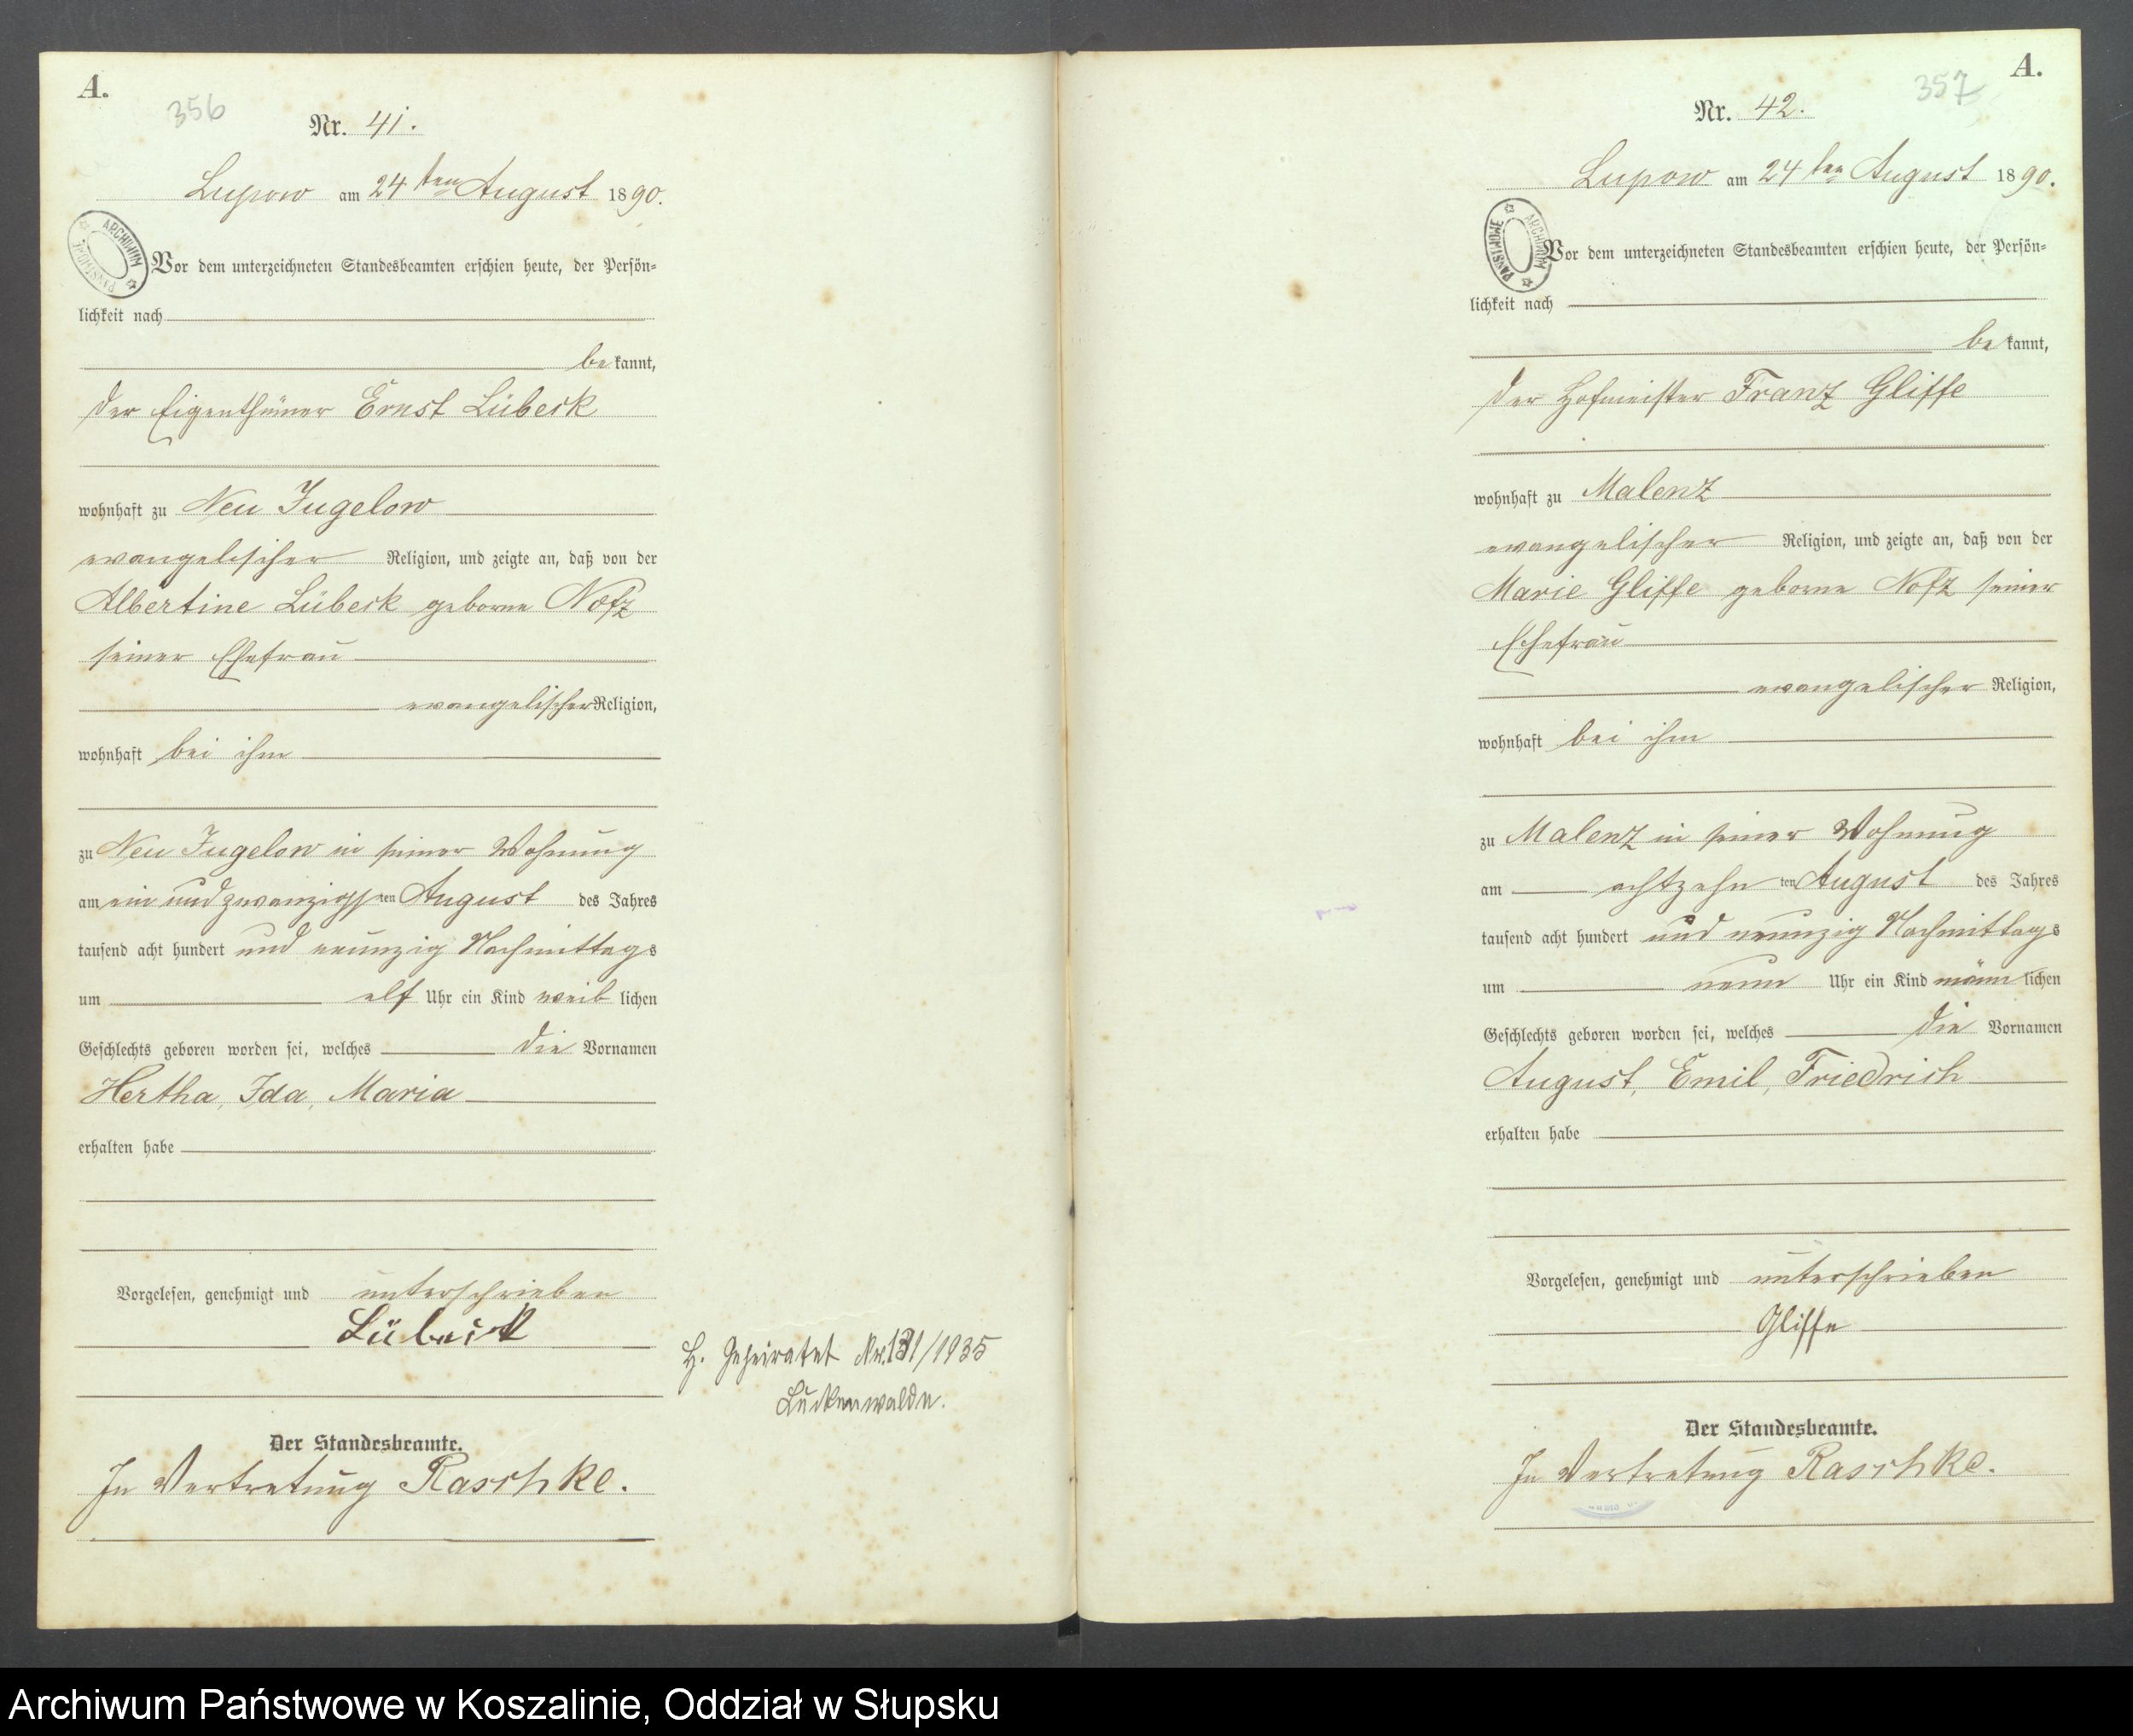 A.
356
Nr. 41.
Lupow am 24ten August 1890.
ARCHIWUM PAŃSTWOWE
Vor dem unterzeichneten Standesbeamten erschien heute, der Persön=
lichkeit nach
bekannt,
der Eigenthümer Ernst Lübeck
wohnhaft zu Neu Jugelow
evangelischer Religion, und zeigte an, daß von der
Albertine Lübeck geborne Nofz
seiner Ehefrau
evangelischer Religion,
wohnhaft bei ihm
zu Neu Jugelow in seiner Wohnung
am ein und zwanzigsten August des Jahres
tausend acht hundert und neunzig Nachmittags
um elf Uhr ein Kind weiblichen
Geschlechts geboren worden sei, welches die Vornamen
Hertha, Ida, Maria
erhalten habe
Vorgelesen, genehmigt und unterschrieben
Lübeck
H. Geheiratet Nr. 131/1935
Luckenwalde.
Der Standesbeamte.
In Vertretung Raschke.
A.
357
Nr. 42.
Lupow am 24ten August 1890.
ARCHIWUM PAŃSTWOWE
Vor dem unterzeichneten Standesbeamten erschien heute, der Persön=
lichkeit nach
bekannt,
der Hofmeister Franz Gliffe
wohnhaft zu Malenz
evangelischer Religion, und zeigte an, daß von der
Marie Gliffe geborne Nofz seiner
Ehefrau
evangelischer Religion,
wohnhaft bei ihm
zu Malenz in seiner Wohnung
am achtzehnten August des Jahres
tausend acht hundert und neunzig Nachmittags
um neun Uhr ein Kind männlichen
Geschlechts geboren worden sei, welches die Vornamen
August, Emil, Friedrich
erhalten habe
Vorgelesen, genehmigt und unterschrieben
Gliffe
Der Standesbeamte.
In Vertretung Raschke.
Archiwum Państwowe w Koszalinie, Oddział w Słupsku